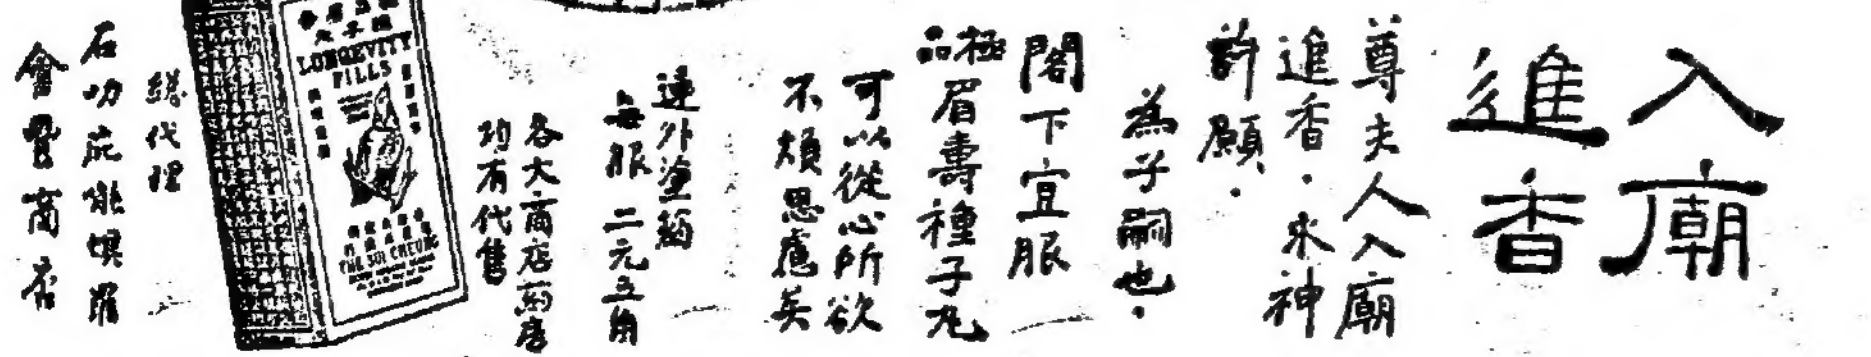 入廟
進香
尊夫人入廟
進香．求神
許願．
為子嗣也．
閣下宜服
極品
眉壽種子丸
可以從心所欲
不煩思慮矣
連外塗药
每服二元五角
各大商店药房
均有代售
LONGEVITY
PILLS
THE SUI CHEONG
總代理
石叻
會豐商店